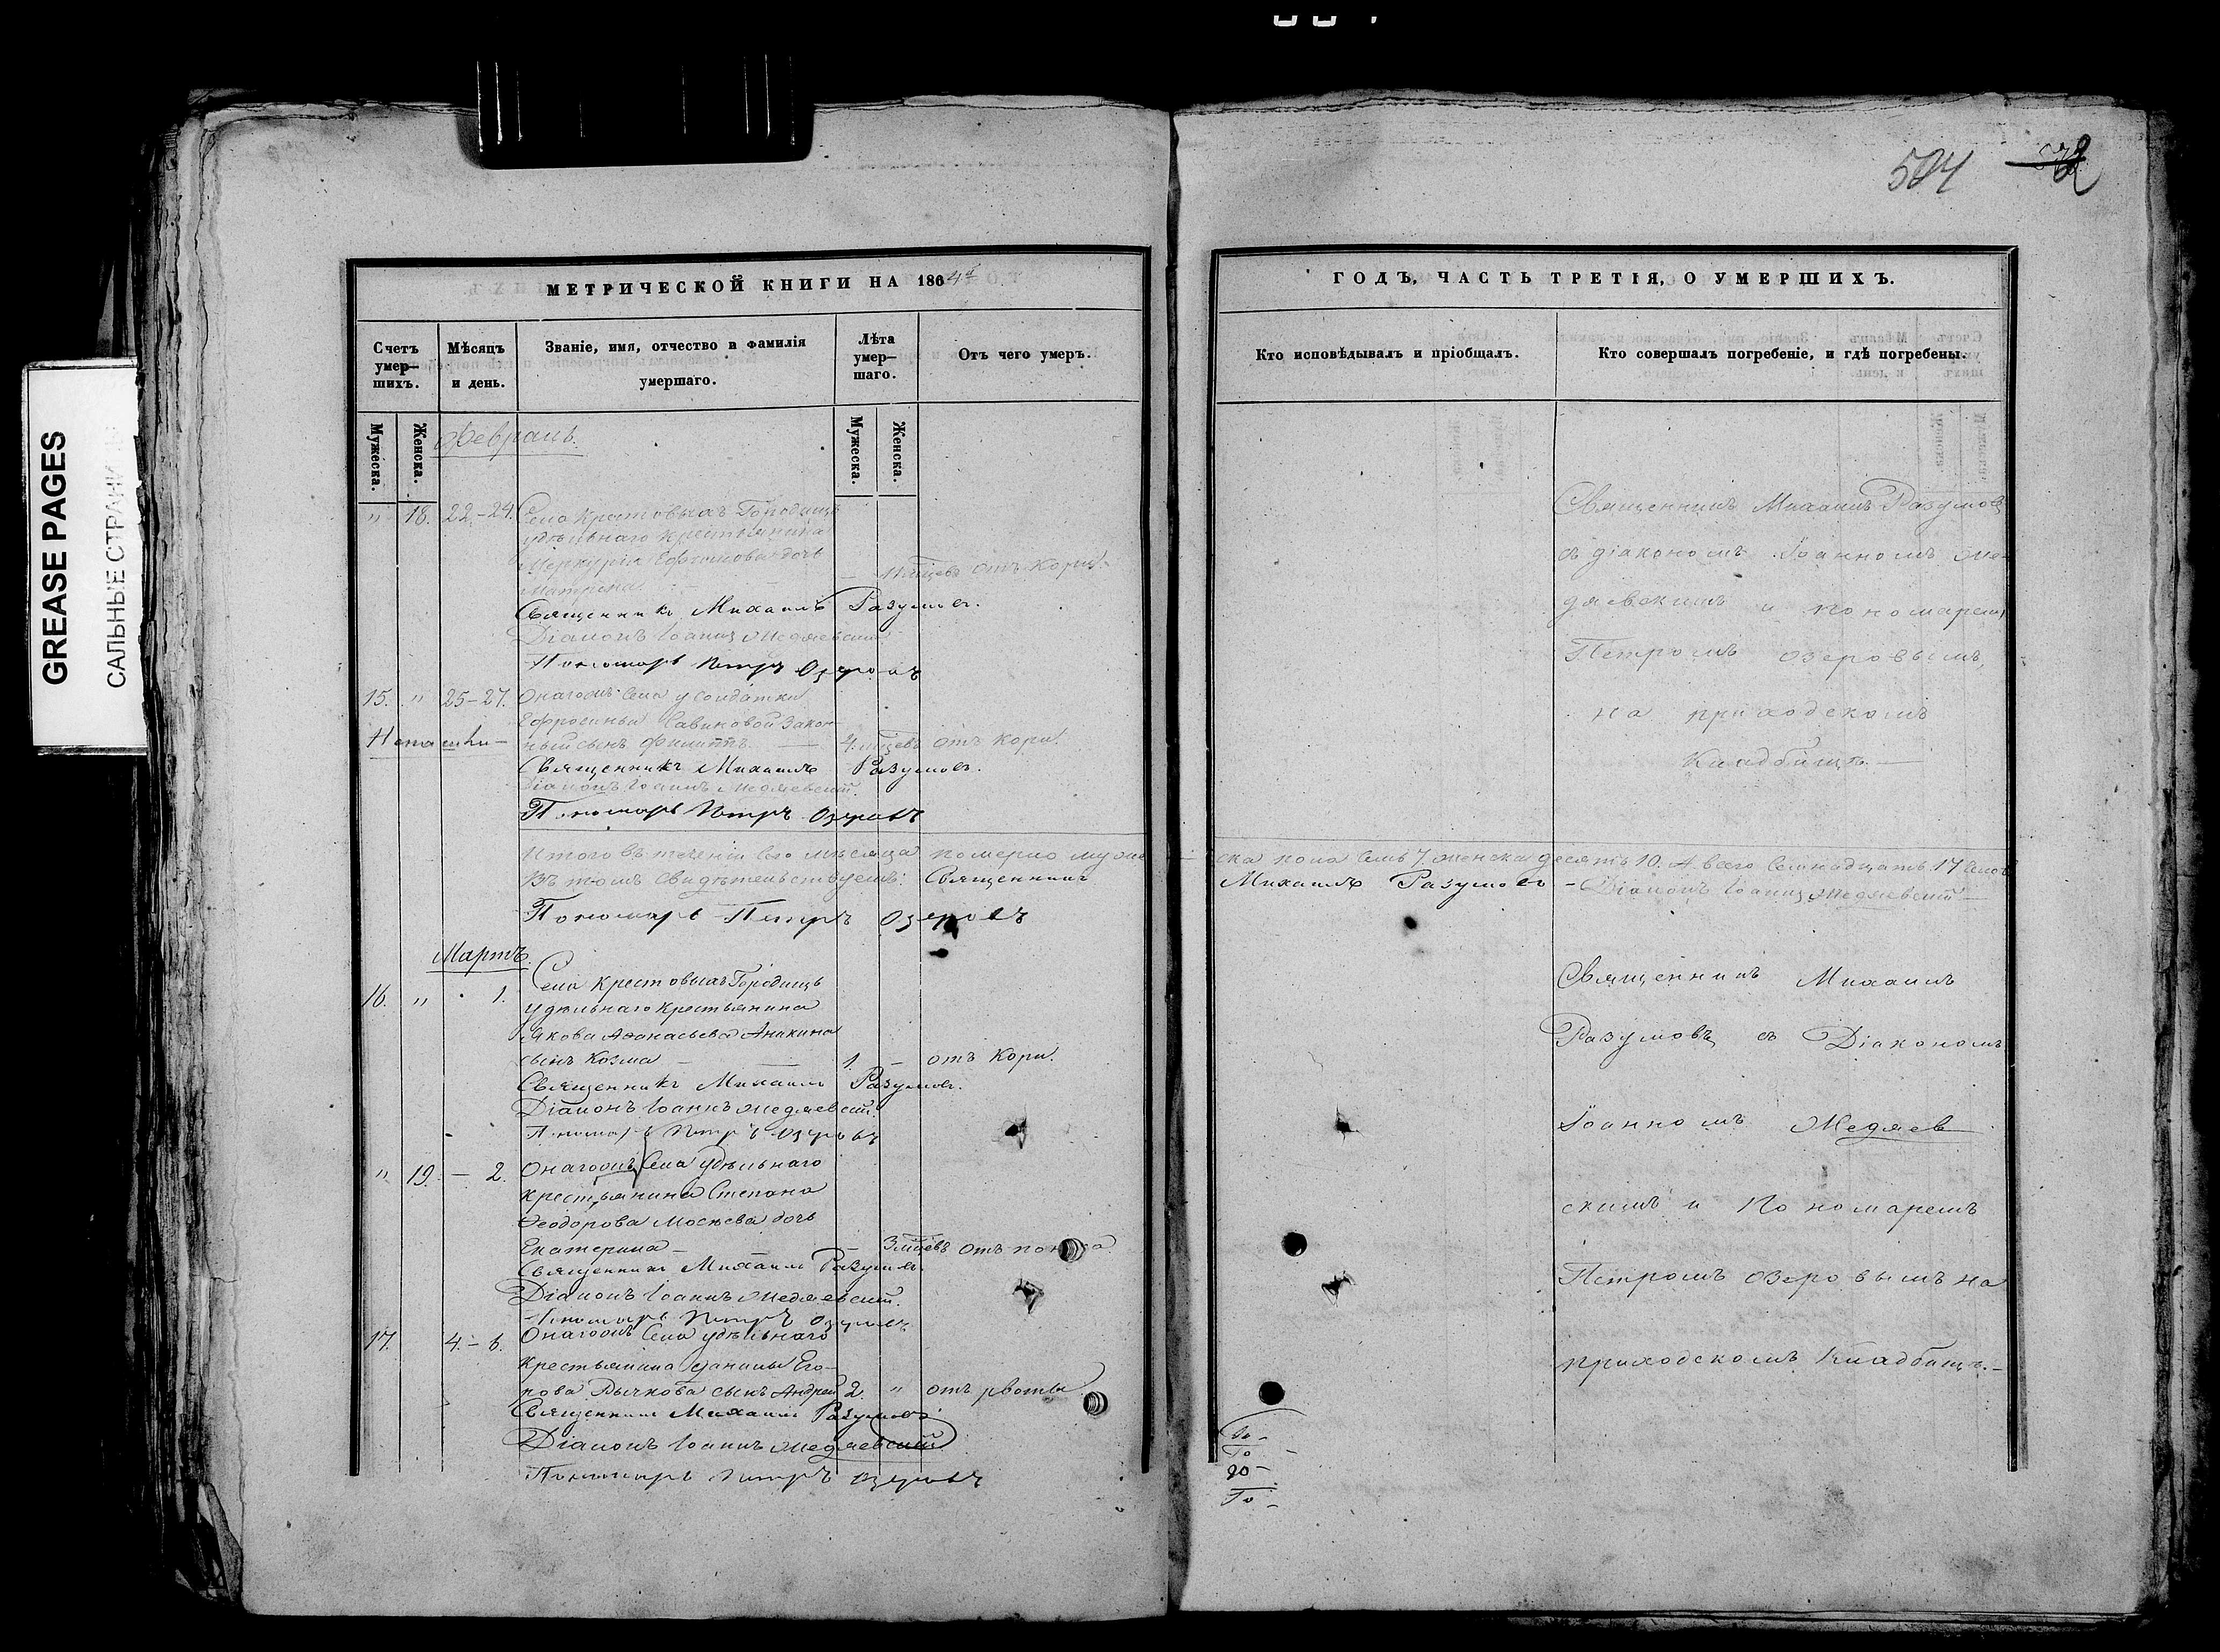 GREASE PAGES
САЛЬНЫЕ СТРАНИ
МЕТРИЧЕСКОЙ КНИГИ НА 1864й
Счетъ умер-
шихъ.
Мѣсяцъ
и день.
Званіе, имя, отчество и фамилія
умершаго.
Лѣта
умер-
шаго.
Отъ чего умеръ.
Мужеска.
Женска.
Мужеска.
Женска.
Февраль.
" 18. 22.-24. Села Крестовыхъ Городищъ
удѣльнаго крестьянина
Меркурія Ефимова дочь
Матрена — мцевъ отъ кори.
Священникъ Михаилъ Разумовъ.
Діаконъ Іоаннъ Медяевскій
Пономарь Петръ Озеровъ
15. " 25-27. Онагожъ Села у солдатки
Ефросиньи Савиновой закон-
ный сынъ Филиппъ. — 4. мцевъ отъ кори.
Священникъ Михаилъ Разумовъ.
Діаконъ Іоаннъ Медяевскій.
Пономарь Петръ Озеровъ
Итого въ теченіи сего мѣсяца померло муже
Въ томъ свидѣтельствуемъ: Священникъ
Пономарь Петръ Озеровъ
Мартъ.
16. " 1. Села Крестовыхъ Городищъ
удѣльнаго крестьянина
Якова Аѳанасьева Аникина
сынъ Козма — 1. — отъ кори.
Священникъ Михаилъ Разумовъ.
Діаконъ Іоаннъ Медяевскій.
Пономарь Петръ Озеровъ
" 19. — 2. Онагожъ Села удѣльнаго
крестьянина Степана
Ѳеодорова Мосѣева дочь
Екатерина — 3 мцевъ отъ
Священникъ Михаилъ Разумовъ.
Діаконъ Іоаннъ Медяевскій.
Пономарь Петръ Озеровъ
17. 4.-6. Онагожъ Села удѣльнаго
крестьянина Данилы Его-
рова Рычкова сынъ Андрей 2. " отъ рвоты
Священникъ Михаилъ Разумовъ
Діаконъ Іоаннъ Медяевскій
Пономарь Петръ Озеровъ
524
ГОДЪ, ЧАСТЬ ТРЕТІЯ, О УМЕРШИХЪ.
Кто исповѣдывалъ и пріобщалъ.
Кто совершалъ погребеніе, и гдѣ погребены.
Священникъ Михаилъ Разумовъ
съ діакономъ Іоанномъ Ме-
дяевскимъ и пономаремъ
Петромъ Озеровымъ,
на приходскомъ
кладбищѣ. —
ска пола семь 7. женска десять 10. А всего семнадцать 17
Михаилъ Разумовъ - Діаконъ Іоаннъ Медяевскій —
Священникъ Михаилъ
Разумовъ съ Діакономъ
Іоанномъ Медяев
скимъ и Пономаремъ
Петромъ Озеровымъ на
приходскомъ кладбищѣ. -